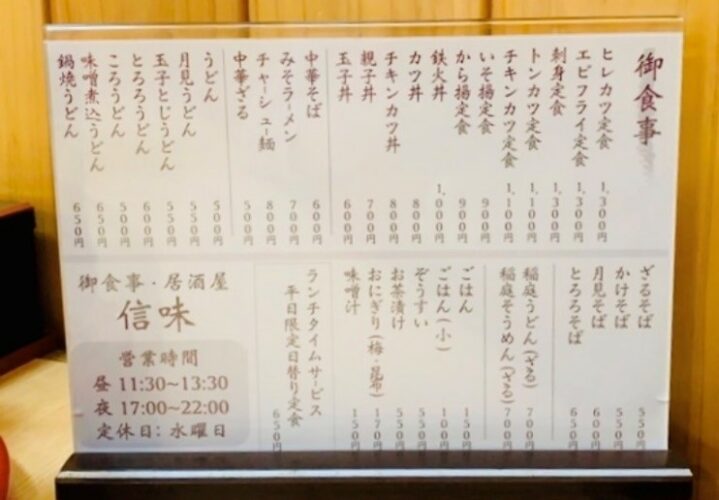 御食事
ヒレカツ定食 1,300円
エビフライ定食 1,300円
刺身定食 1,300円
トンカツ定食 1,100円
チキンカツ定食 1,100円
いそ揚定食 900円
から揚定食 900円
鉄火丼 1,000円
カツ丼 800円
チキンカツ丼 800円
親子丼 700円
玉子丼 600円
中華そば 600円
みそラーメン 700円
チャーシュー麺 800円
中華ざる 500円
うどん 500円
月見うどん 550円
玉子とじうどん 550円
とろろうどん 600円
ころうどん 500円
味噌煮込うどん 650円
鍋焼うどん 650円
ざるそば 550円
かけそば 550円
月見そば 600円
とろろそば 650円
稲庭うどん(ざる) 700円
稲庭そうめん(ざる) 700円
ごはん 150円
ごはん(小) 100円
ぞうすい 550円
お茶漬け 550円
おにぎり(梅・昆布) 170円
味噌汁 150円
ランチタイムサービス
平日限定日替り定食 650円
御食事・居酒屋
信味
営業時間
昼 11:30~13:30
夜 17:00~22:00
定休日: 水曜日